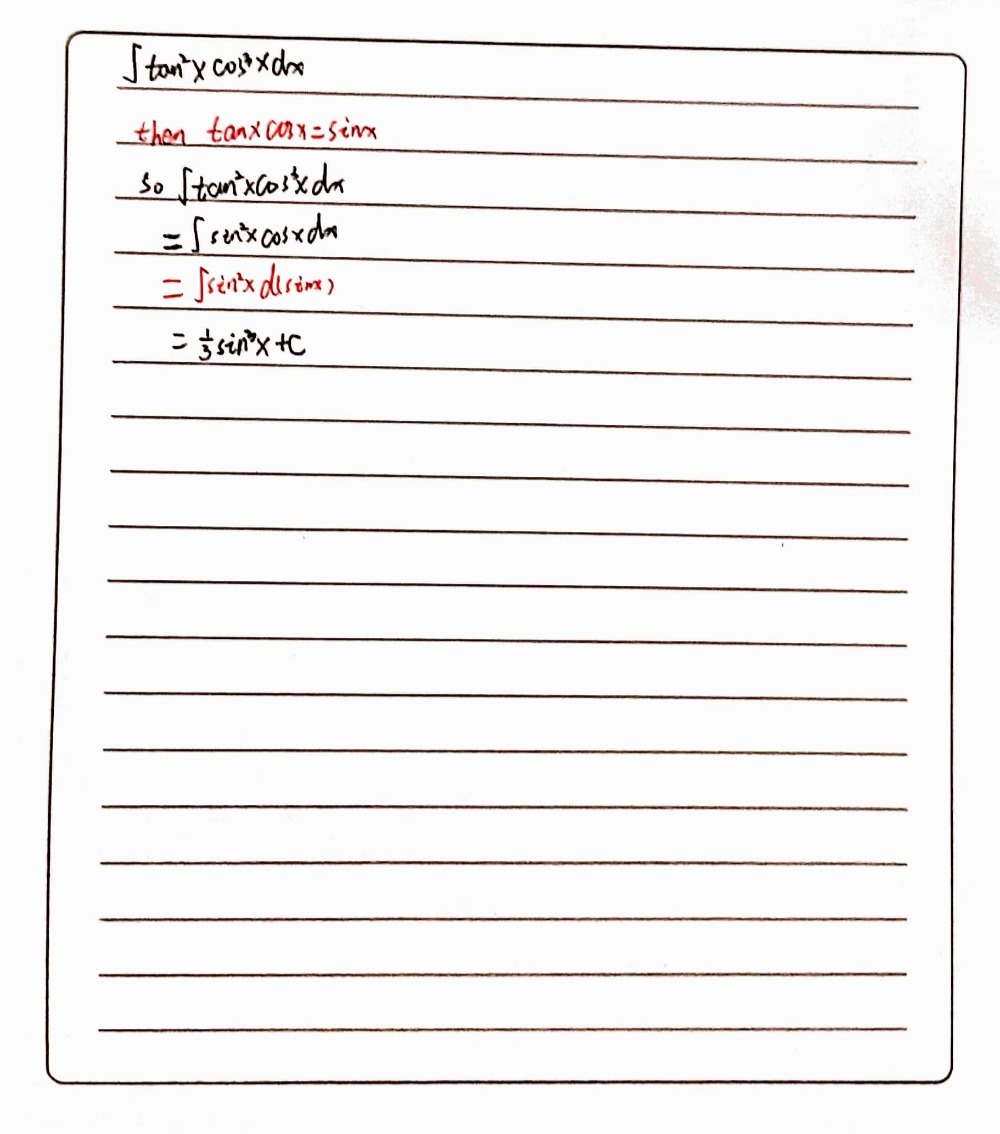 ∫tan²x cos³x dx
then tanx cosx = sinx
so ∫tan²x cos³x dx
= ∫sin²x cosx dx
= ∫sin²x d(sinx)
= 1/3 sin³x + C